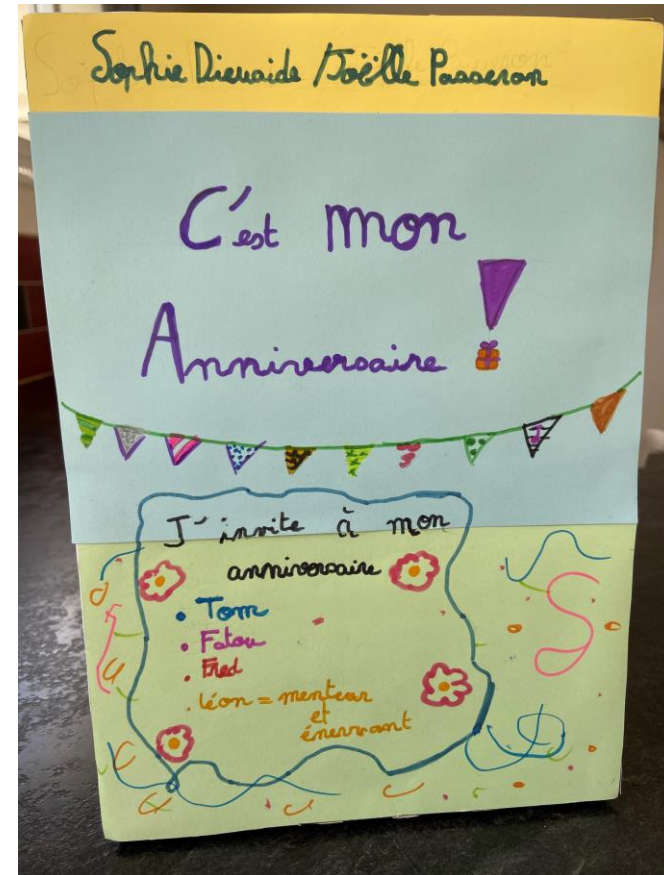 Sophie Dieuaide / Joëlle Passeron
C'est mon
Anniversaire !
J'invite à mon
anniversaire
• Tom
• Fatou
• Fred
. léon = menteur
et
énervant